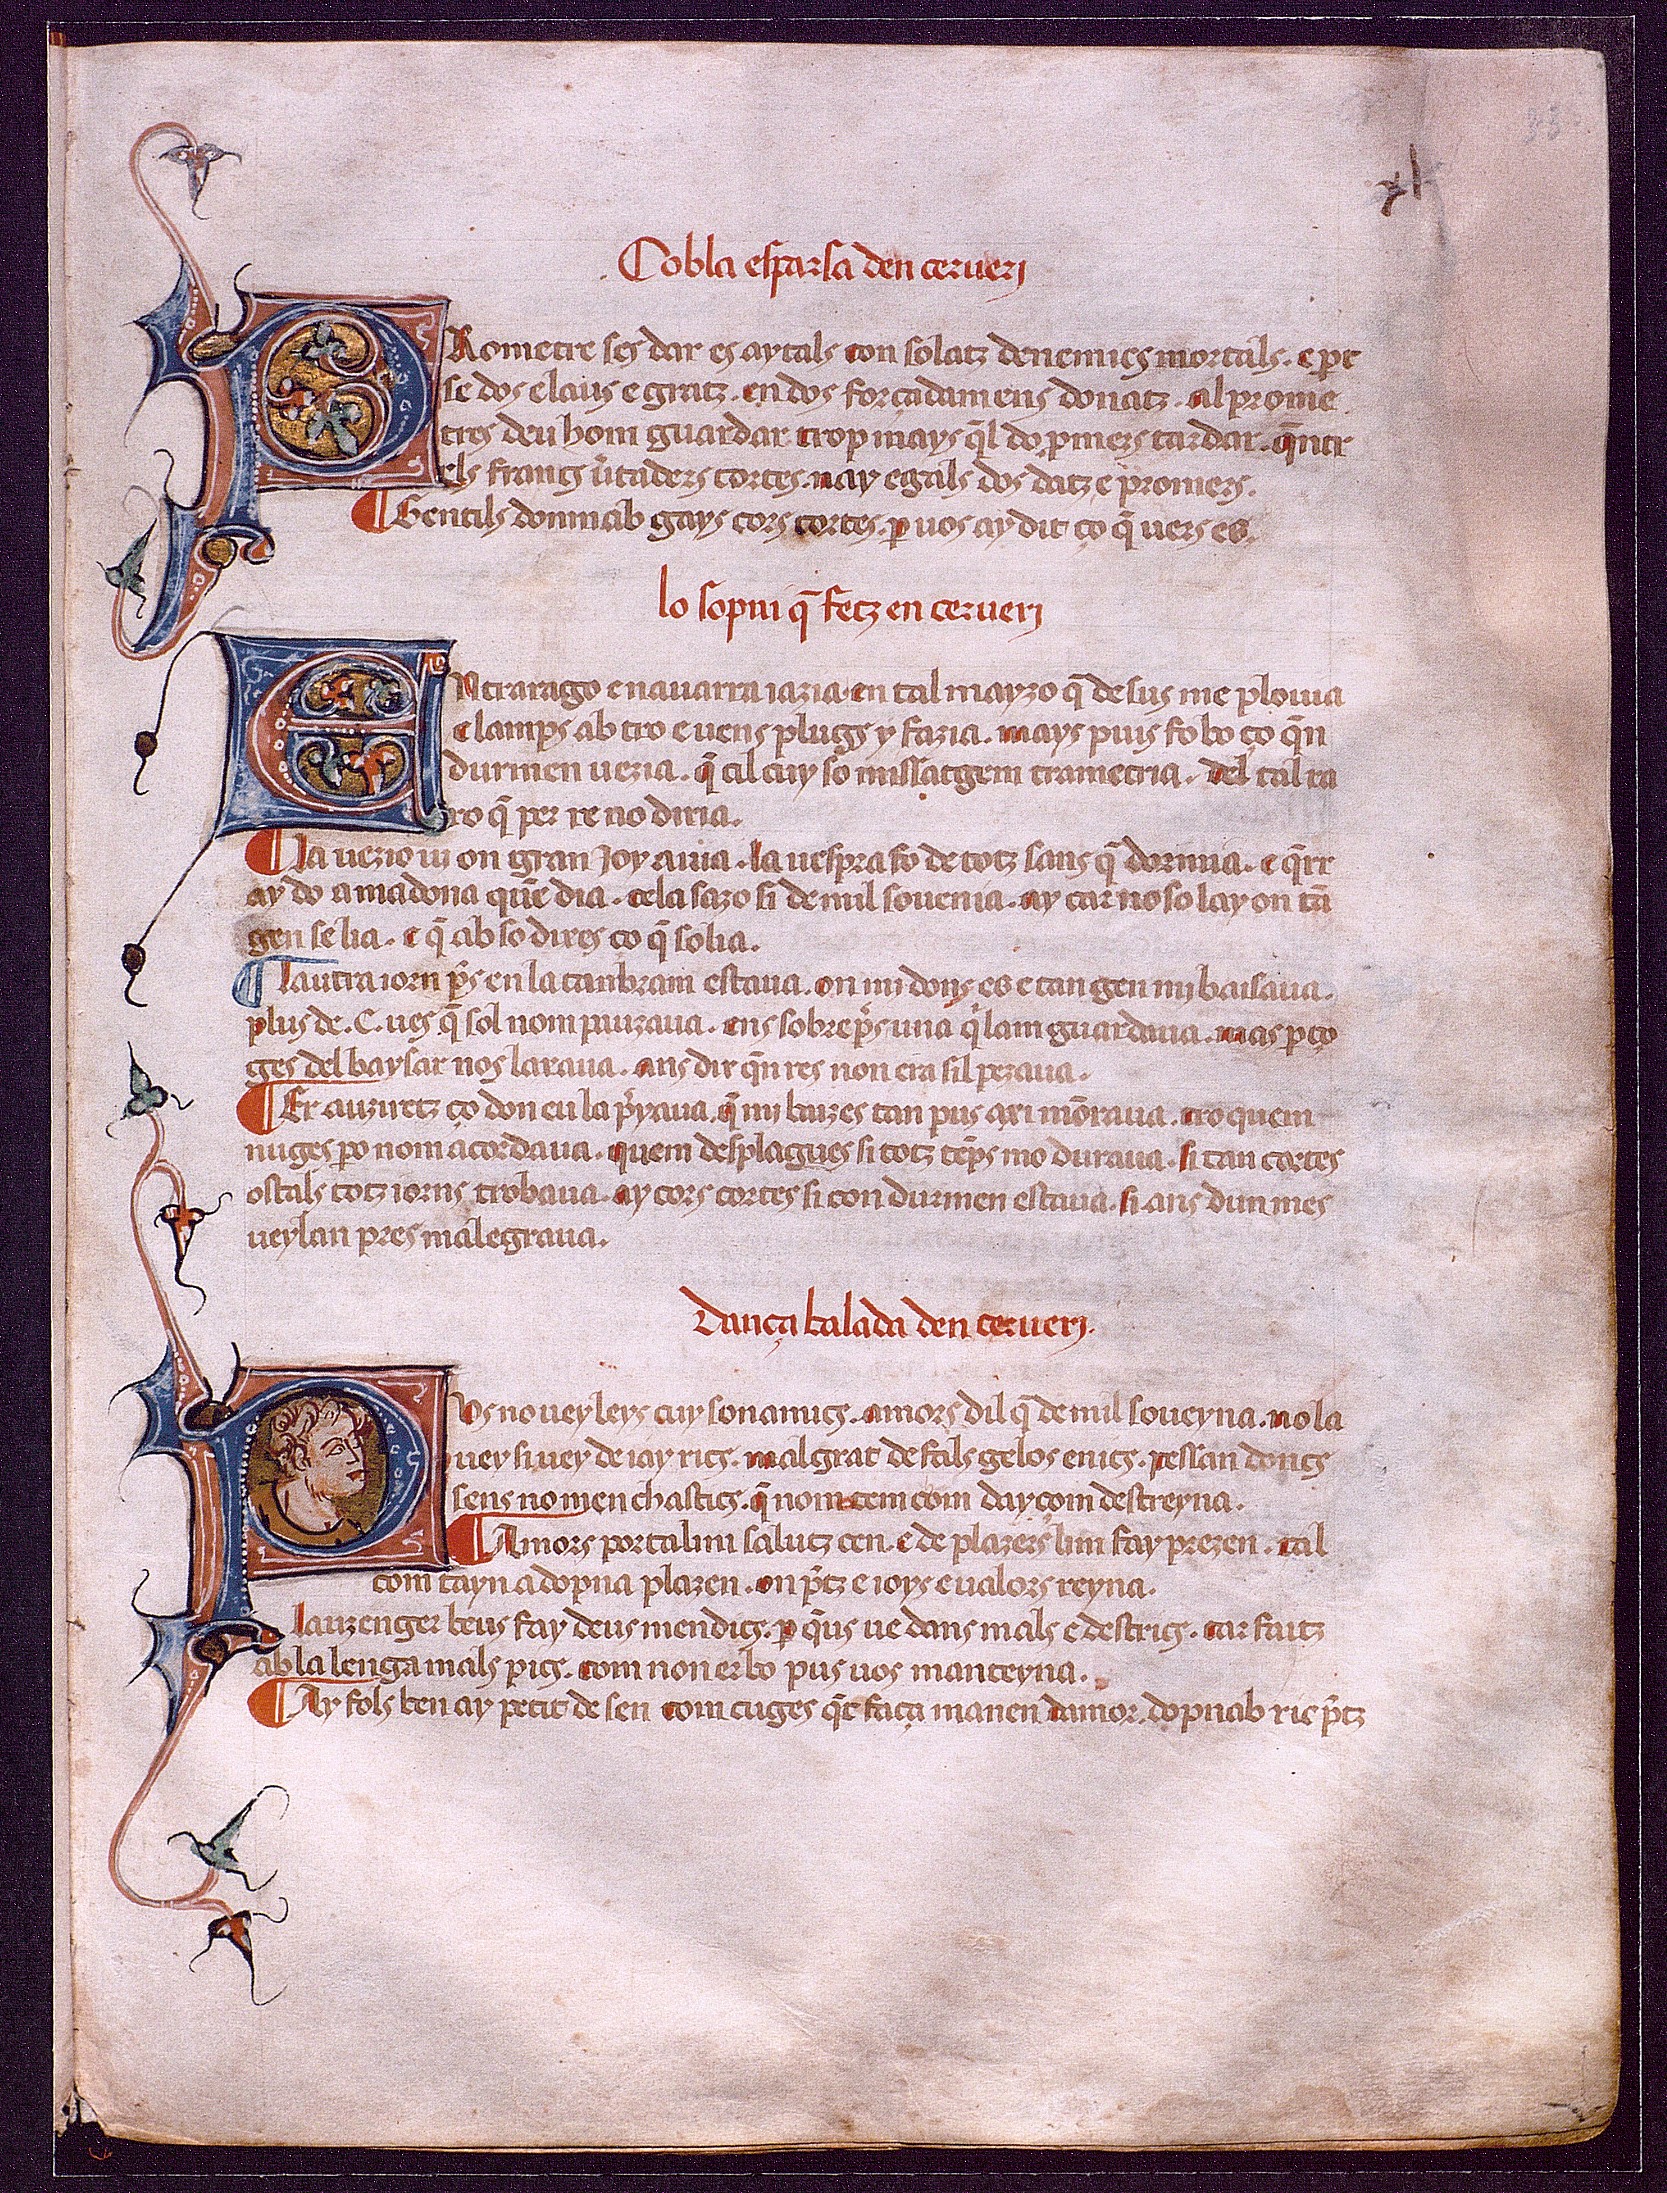 Cobla esparsa den cerueri
PRometre ses dar es aytals con solatz denemics mortals. e per
se dos elaus e gratz. en dos forçadamens donatz. al prome
tres deu hom guardar. trop mays q̄l do pmers tardar. q̄ntr
els francs ūtaders cortes. nay egals dos datz e promers.
¶ Gentils dommab gays cors cortes. p uos ay dit ço q̄ uers es.
lo sopni q̄ fetz en cerueri
ENtrarago e nauarra iazia. en tal mayzo q̄ de sus me plouia
e lamps ab tro e uens plugs y fazia. mays puis fo bo ço q̄n
durmen uezia. q̄ cil cuy so missatgem trametria. del tal ra
ro q̄ per re no diria.
¶ la uezio ui on gran joy auia. la uespra fo de totz sans q̄ dormia. e q̄rr
ay do amadona quē dia. cela sazo si de mil souenia. ay car no so lay on tā
gen se lia. e q̄ ab so dixes ço q̄ solia.
¶ lautra iorn ps en la canbram estaua. on mi dons es e tan gen mi baisaua.
plus de .C. ues q̄ sol nom pauzaua. ens sobreps una q̄lam guardaua. mas p ço
ges del baysar nos laxaua. ans dir q̄n res non era sil pezaua.
¶ Er auziretz ço don eu la pryaua. q̄ mi baizes tan pus axi mōraua. cro quem
nuges po nom acordaua. quem desplagues si totz tēps mo duraua. si tan cortes
ostals totz iorns trobaua. ay cors cortes si con durmen estaua. si ans dun mes
ueylan pres malegraua.
Dança balada den cerueri.
POs no uey leys cuy son amics. amors dil q̄ de mil soueyna. no la
uey si uey de iay rics. mal grat de fals gelos enics. pessan doncs
sens no men chastics. q̄ nom tem com dayçom destreyna.
¶ Amors portalim salutz cen. e de plazers lim fay prezen. tal
com tayn a dopna plazen. on ptz e ioys e ualors reyna.
lauzenger beus fay deus mendics. p q̄us ue dans mals e destrics. car faitz
ab la lenga mals pics. com non er bo pus uos manteyna.
¶ Ay fols ben ay petit de sen com cuges q̄t faça manen damor. dopnab ric ptz